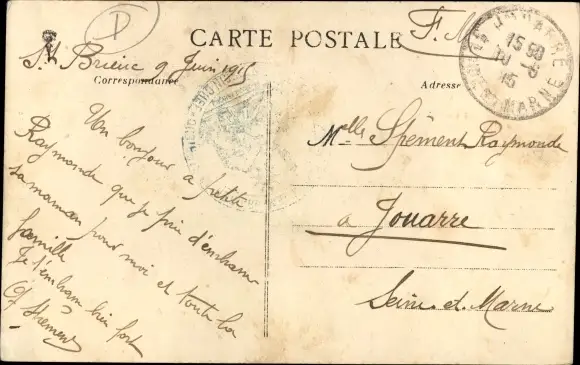 D
F. M.
CARTE POSTALE
Correspondance
Adresse
St. Brieuc 9 Juin 1915
Un bonjour a petite
Raymonde que je prie d'embrasser
sa maman pour moi et toute la
famille
Je t'embrasse bien fort
Melle Spément Raymonde
a Jouarre
Seine et Marne
JOUARRE
15 50
10 -6
15
MARNE